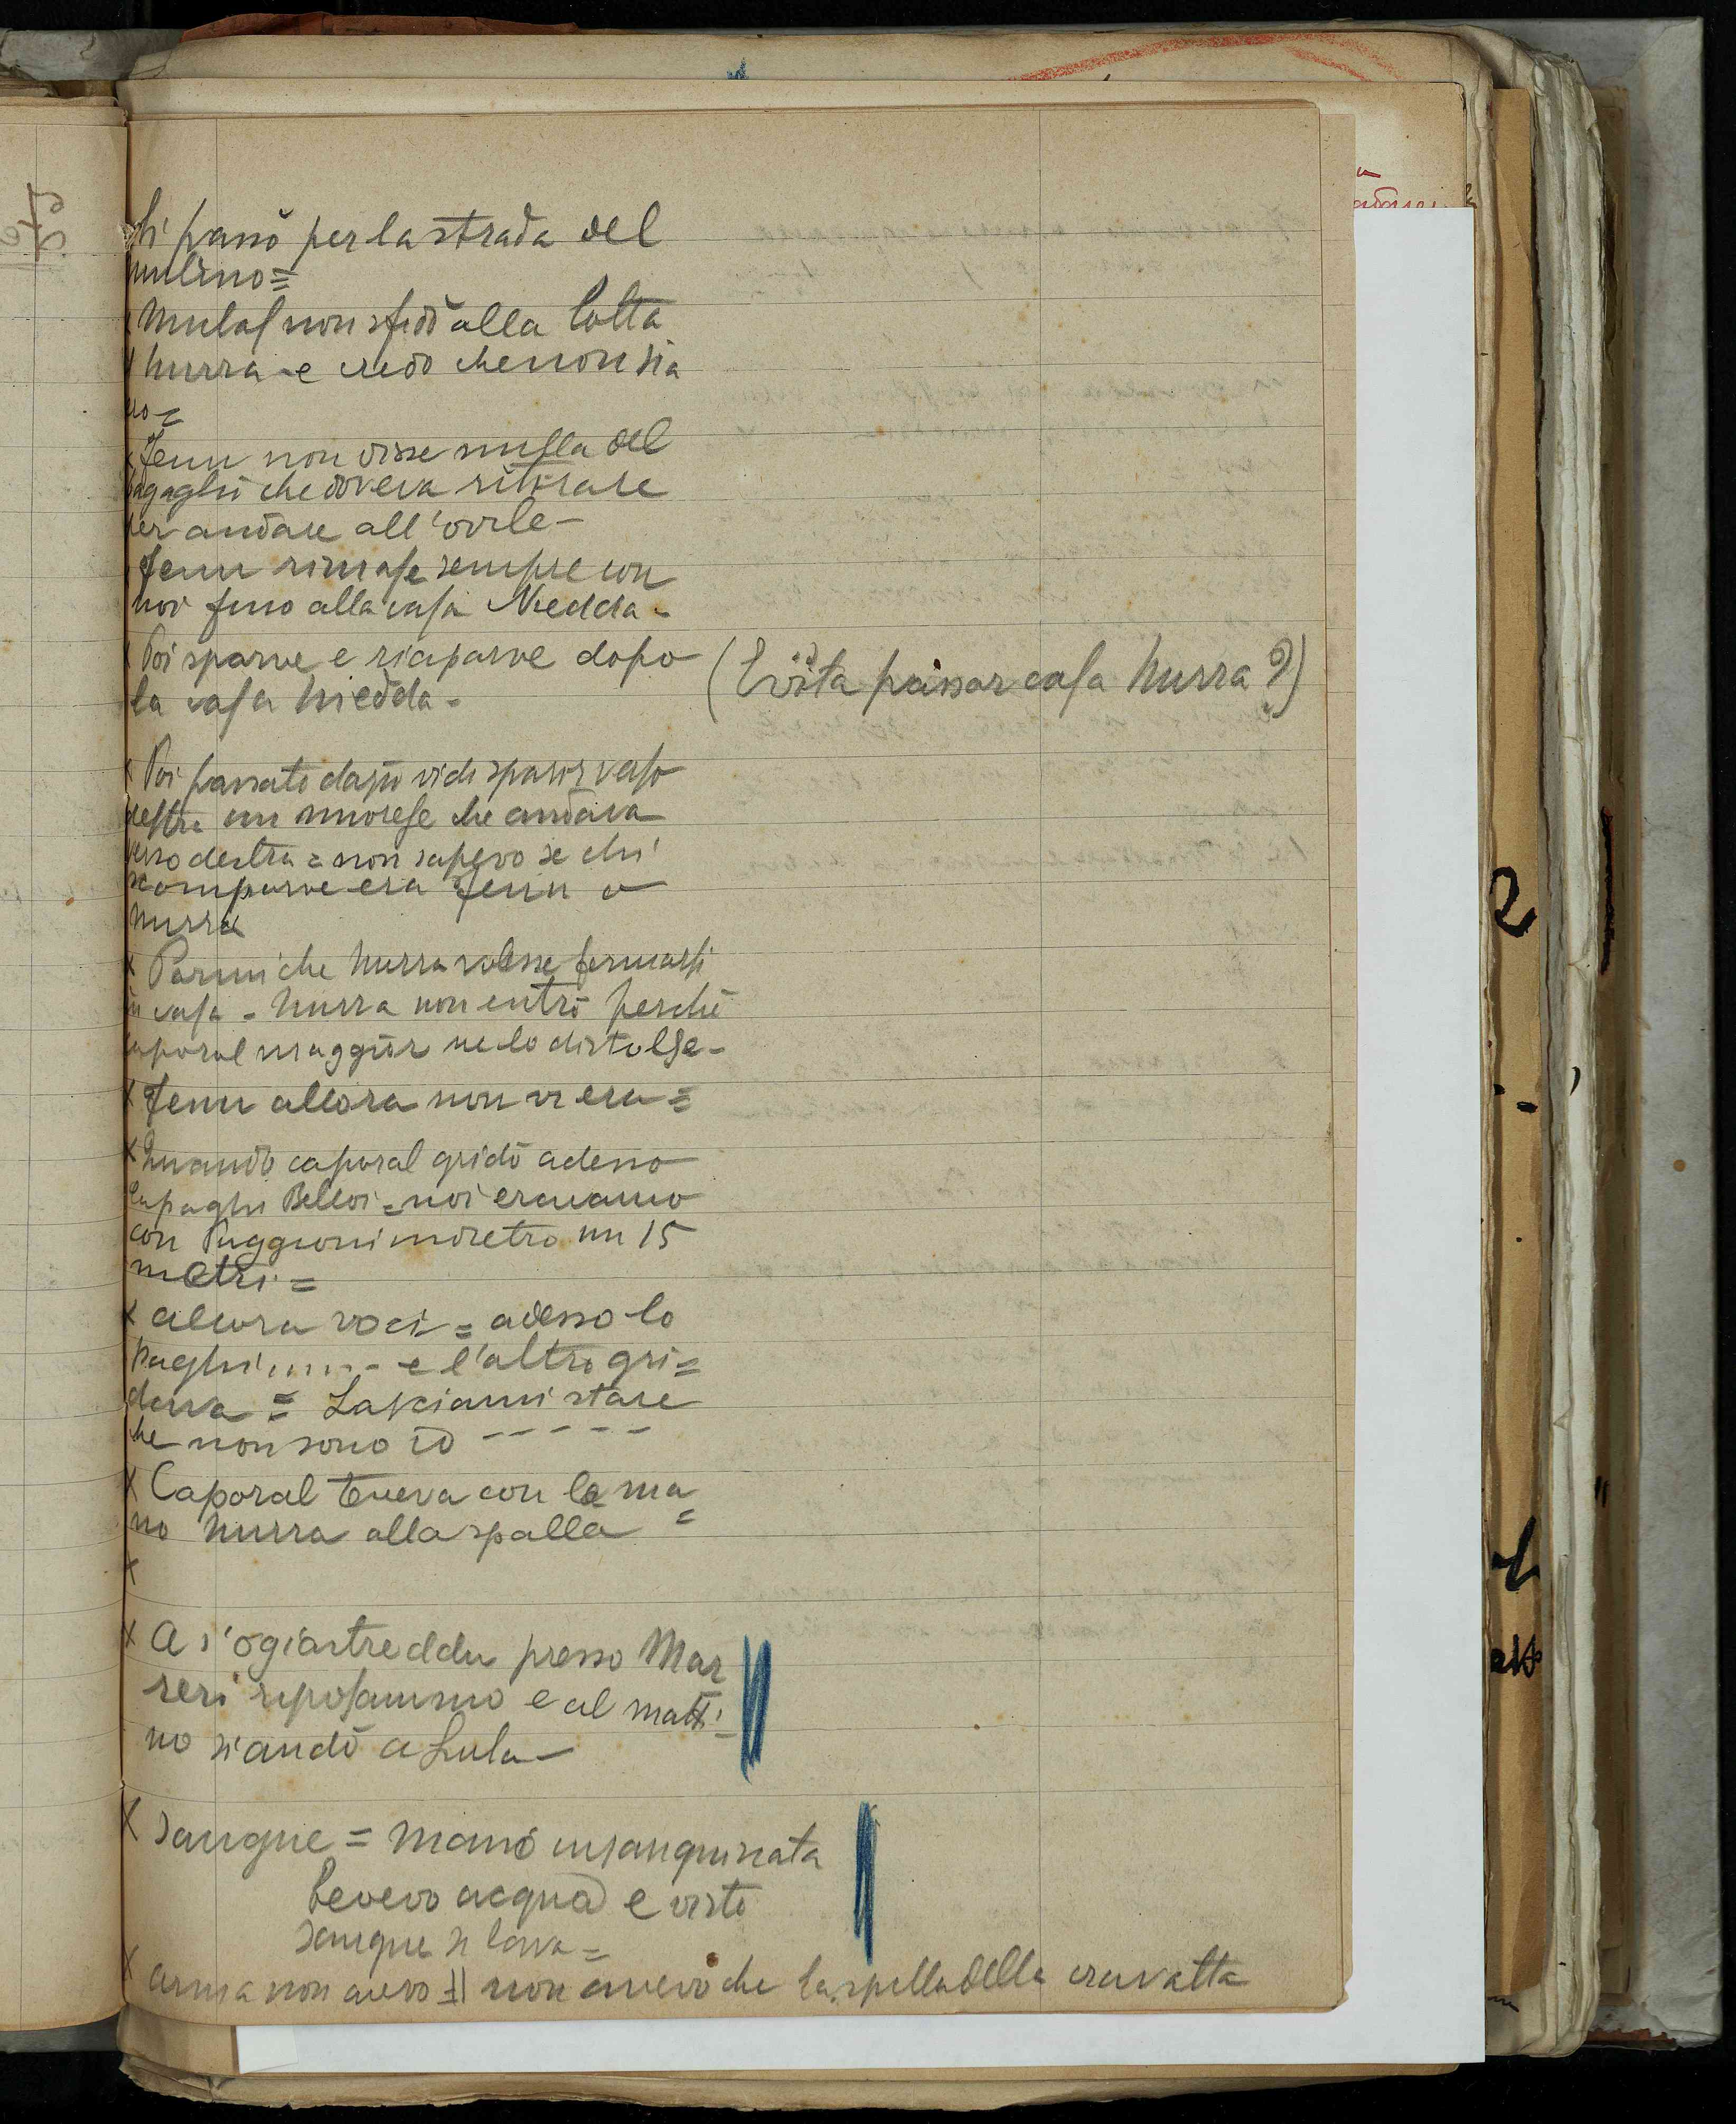 Si passò per la strada del
mulino =
x Mulas non sfidò alla lotta
x Murra - e credo che non sia
x Fenu non disse nulla del
bagaglii che doveva ritirare
per andare all'ovile -
x Fenu rimase sempre con
noi fino alla casa Niedda -
x Poi sparve e riaparve dopo (Evita passar casa Murra?)
la casa Niedda -
x Poi passato dazio vidi sparir verso
destra un nuorese che andava
verso destra = non sapevo se chi
scomparve era Fenu o
Murra
x Parmi che Murra volesse fermarsi
in casa - Murra non entrò perché
caporal maggior ne lo distolse -
x Fenu allora non vi era =
x Quando caporal gridò adesso
la paghi Belloi = noi eravamo
con Puggioni indietro un 15
metri =
x allora voci = adesso lo
paghi ..... - e l'altro gri=
dava = Lasciami stare
che non sono io - - - - -
x Caporal teneva con la ma
no Murra alla spalla =
x
x A s'ogiastreddu presso Mar
reri riposammo e al matti-
no si andò a Lula -
x Sangue = mano insanguinata
bevevo acqua e visto
sangue si lava =
x arma non avevo = non avevo che la spilla della cravatta
2